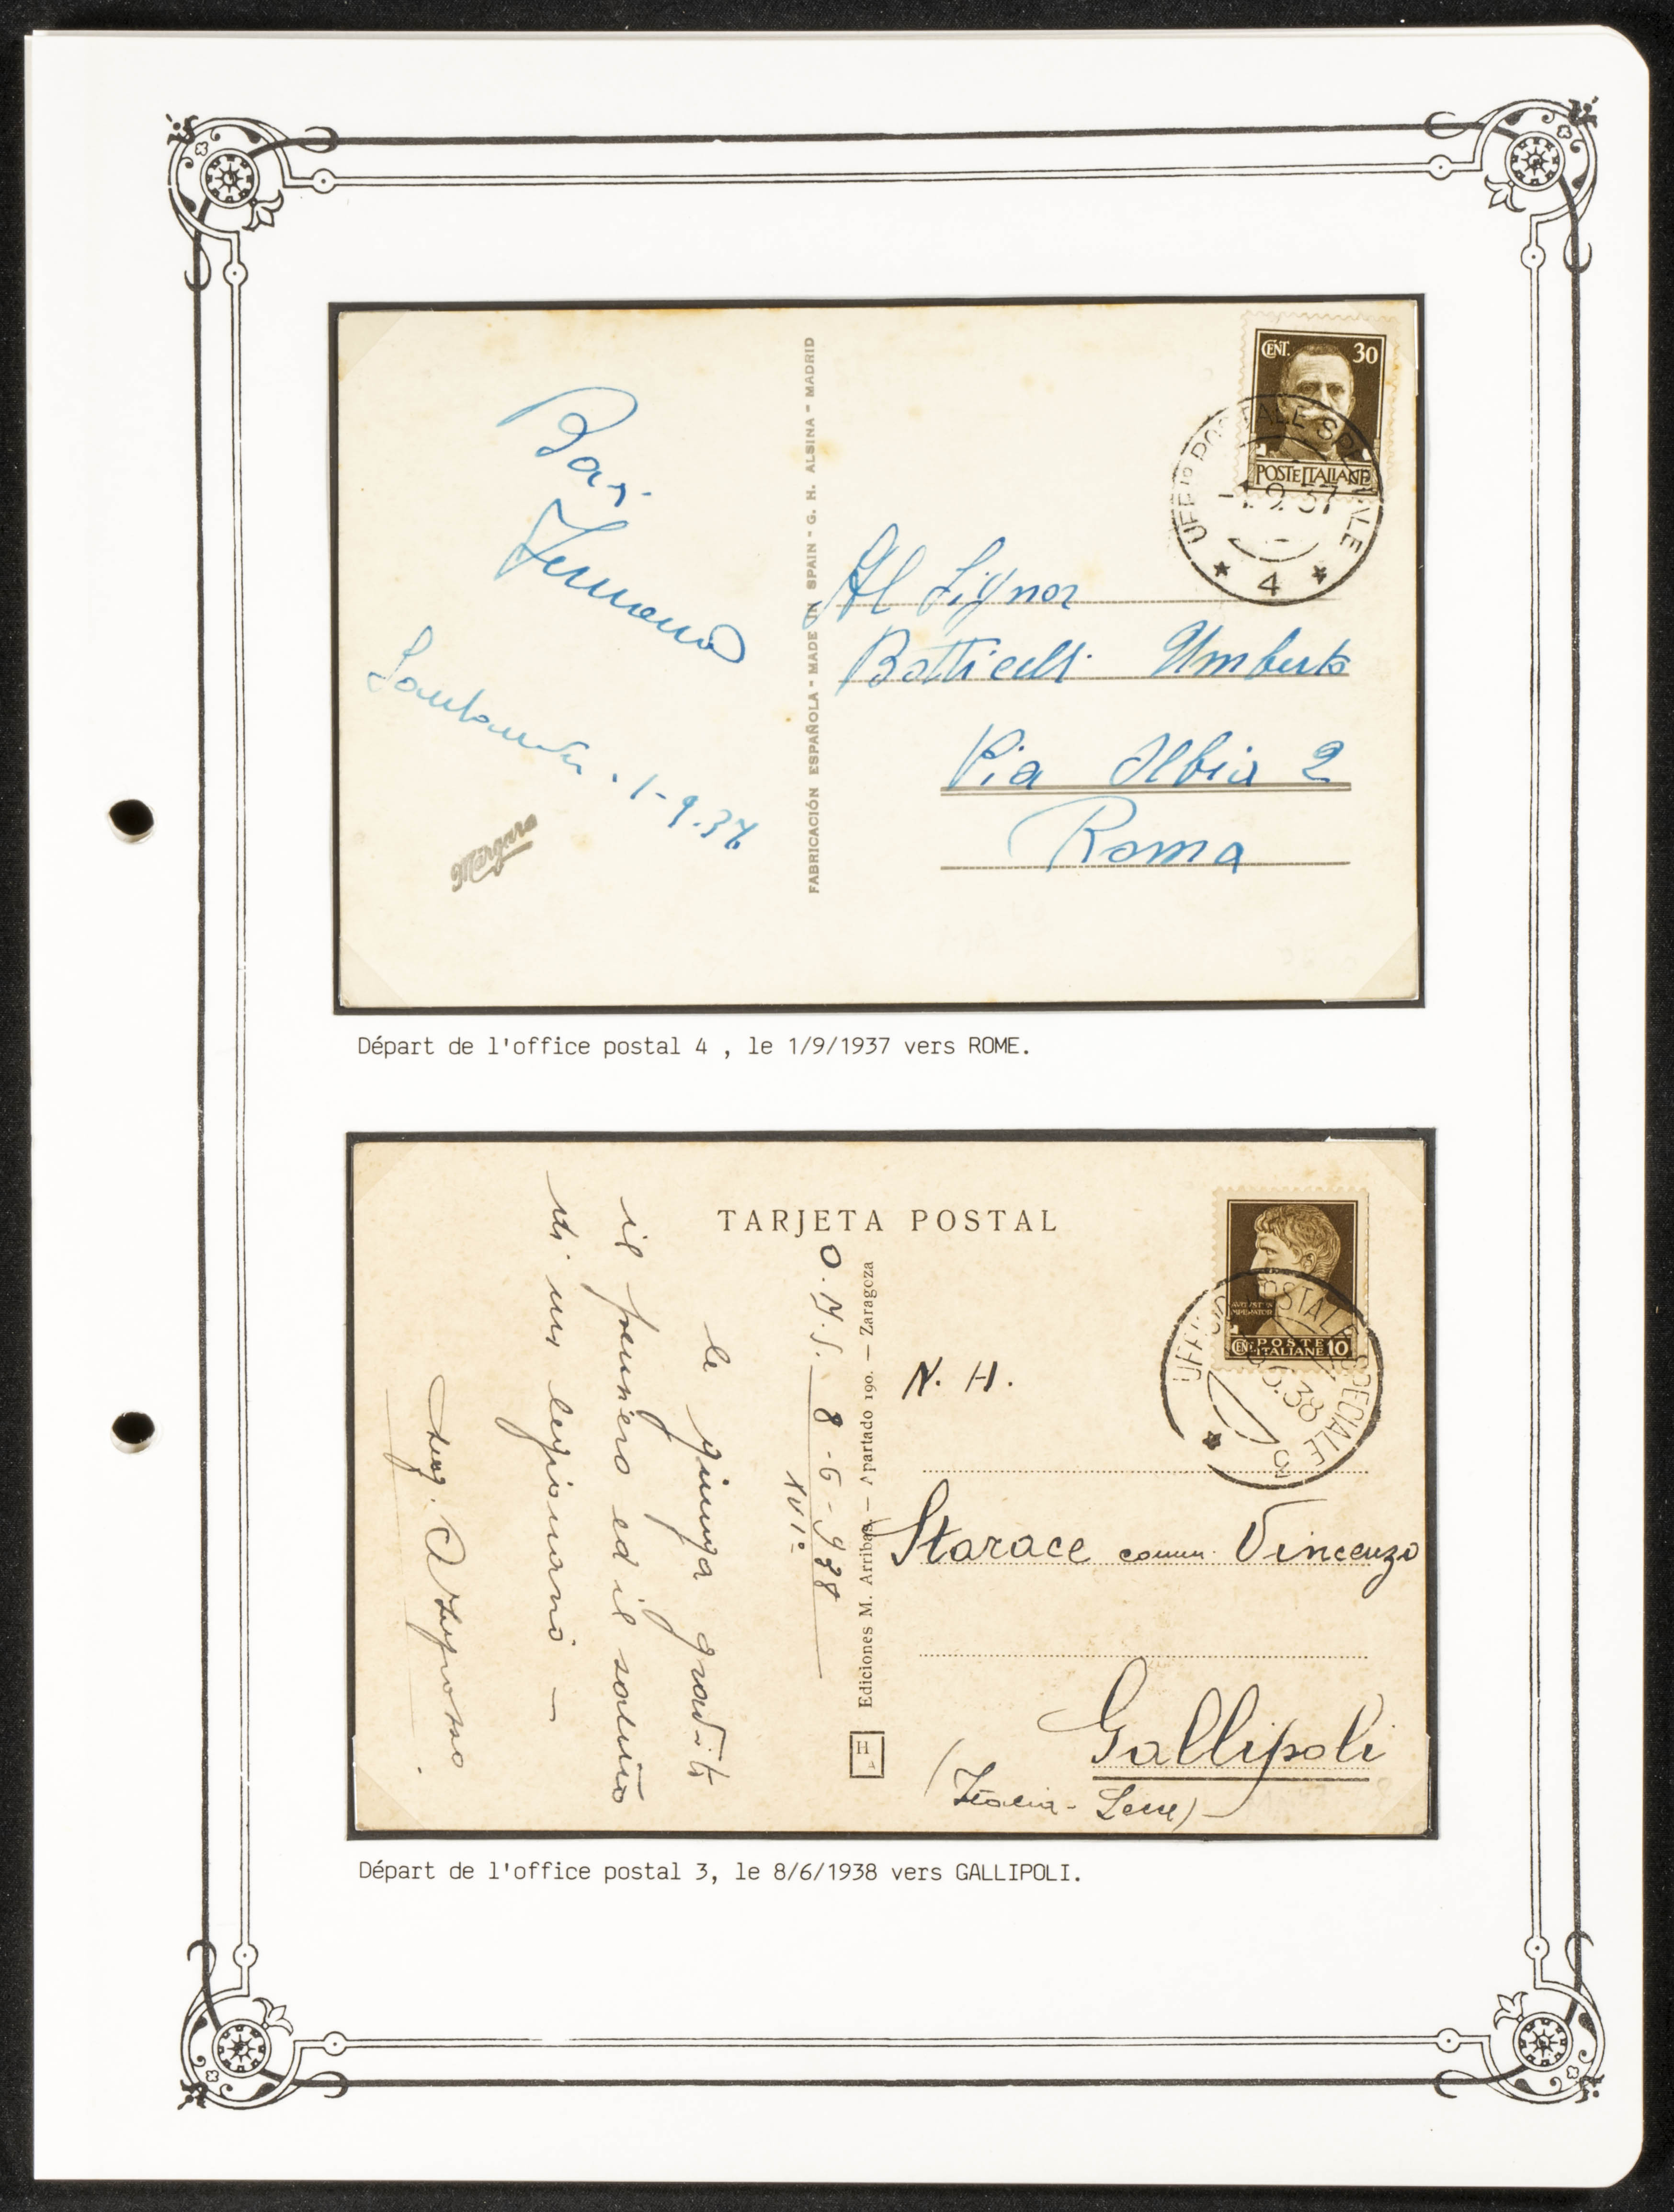 FABRICACIÓN ESPAÑOLA - MADE IN SPAIN - G. H. ALSINA - MADRID
CENT. 30
POSTE ITALIANE
UFFIO POSTALE SPECIALE
-1.9.37
* 4 *
Baci
Santander. 1-9.37
Márgara
Al Signor
Botticelli Umberto
Via Albia 2
Roma
Départ de l'office postal 4 , le 1/9/1937 vers ROME.
TARJETA POSTAL
POSTE
CENT. ITALIANE 10
UFFICIO POSTALE SPECIALE 3
6.38
Ediciones M. Arribas — Apartado 190. — Zaragoza
O.M.S. 8-6-938
XVIº
le giunga gradito
il pensiero ed il saluto
di un legionario —
N. H.
Starace comm. Vincenzo
Gallipoli
(Italia - Lecce)
Départ de l'office postal 3, le 8/6/1938 vers GALLIPOLI.